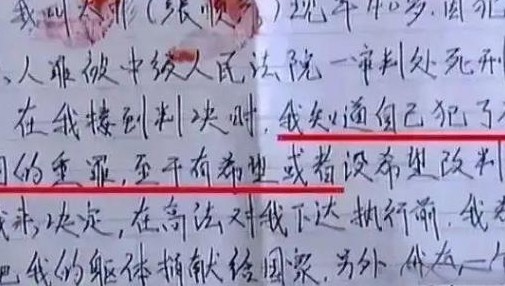 我叫 (张顺 ) 现年40多.因犯
、人罪被中级人民法院一审判处死刑
在我接到判决时,我知道自己犯了
的重罪,至于有希望或者没希望改判
来决定,在高法对我下达执行前,我
把我的躯体捐献给国家.另外